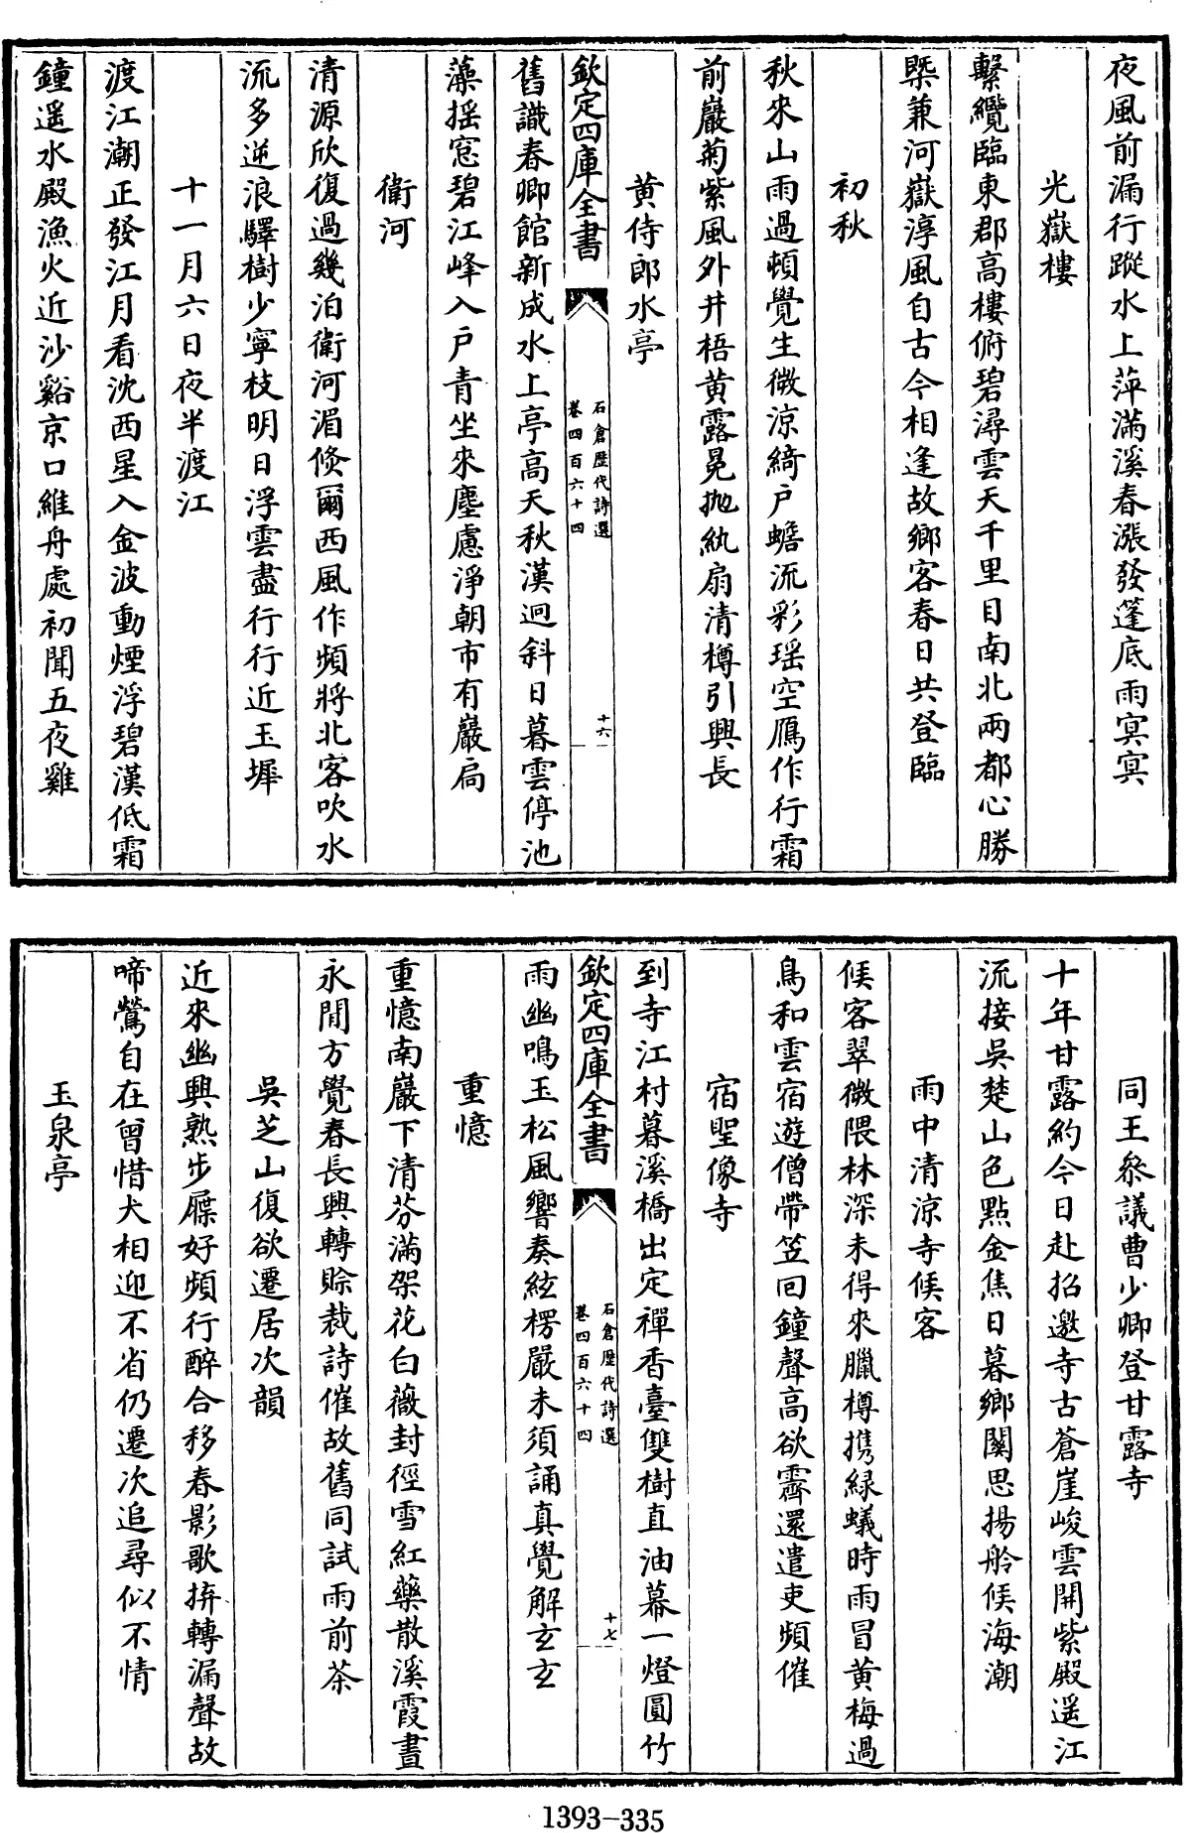 夜風前漏行蹤水上萍滿溪春漲發篷底雨冥冥
光嶽樓
繫纜臨東郡高樓俯碧潯雲天千里目南北兩都心勝
槩兼河嶽淳風自古今相逢故鄉客春日共登臨
初秋
秋來山雨過頓覺生微涼綺戶蟾流彩瑶空鴈作行霜
前巖菊紫風外井梧黄露晃抛紈扇清樽引興長
黄侍郎水亭
欽定四庫全書
石倉歷代詩選
卷四百六十四
十六
舊識春卿館新成水上亭高天秋漢迥斜日暮雲停池
藻揺窓碧江峰入戶青坐來塵慮淨朝市有巖扃
衛河
清源欣復過幾泊衛河湄倐爾西風作頻將北客吹水
流多逆浪驛樹少寧枝明日浮雲盡行行近玉墀
十一月六日夜半渡江
渡江潮正發江月看沈西星入金波動煙浮碧漢低霜
鐘遥水殿漁火近沙谿京口維舟處初聞五夜雞
同王叅議曹少卿登甘露寺
十年甘露約今日赴招邀寺古蒼崖峻雲開紫殿遥江
流接吳楚山色點金焦日暮鄉關思揚舲候海潮
雨中清涼寺候客
候客翠微隈林深未得來臘樽携緑蟻時雨冒黄梅過
鳥和雲宿遊僧帶笠回鐘聲高欲霽還遣吏頻催
宿聖像寺
到寺江村暮溪橋出定禪香臺雙樹直油幕一燈圓竹
欽定四庫全書
石倉歷代詩選
卷四百六十四
十七
雨幽鳴玉松風響奏絃楞嚴未須誦真覺解玄玄
重憶
重憶南巖下清芬滿架花白薇封徑雪紅藥散溪霞晝
永閒方覺春長興轉賒裁詩催故舊同試雨前茶
吳芝山復欲遷居次韻
近來幽興熟步屧好頻行醉合移春影歌拚轉漏聲故
啼鶯自在曾惜犬相迎不省仍遷次追尋似不情
玉泉亭
1393-335